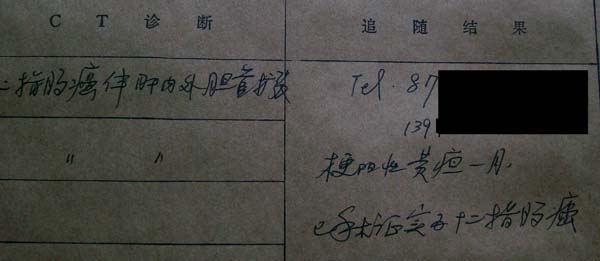 CT诊断
追随结果
二指肠癌伴肝内外胆管扩张
Tel. 87
139
〃 〃
梗阻性黄疸一月.
已手术证实为十二指肠癌